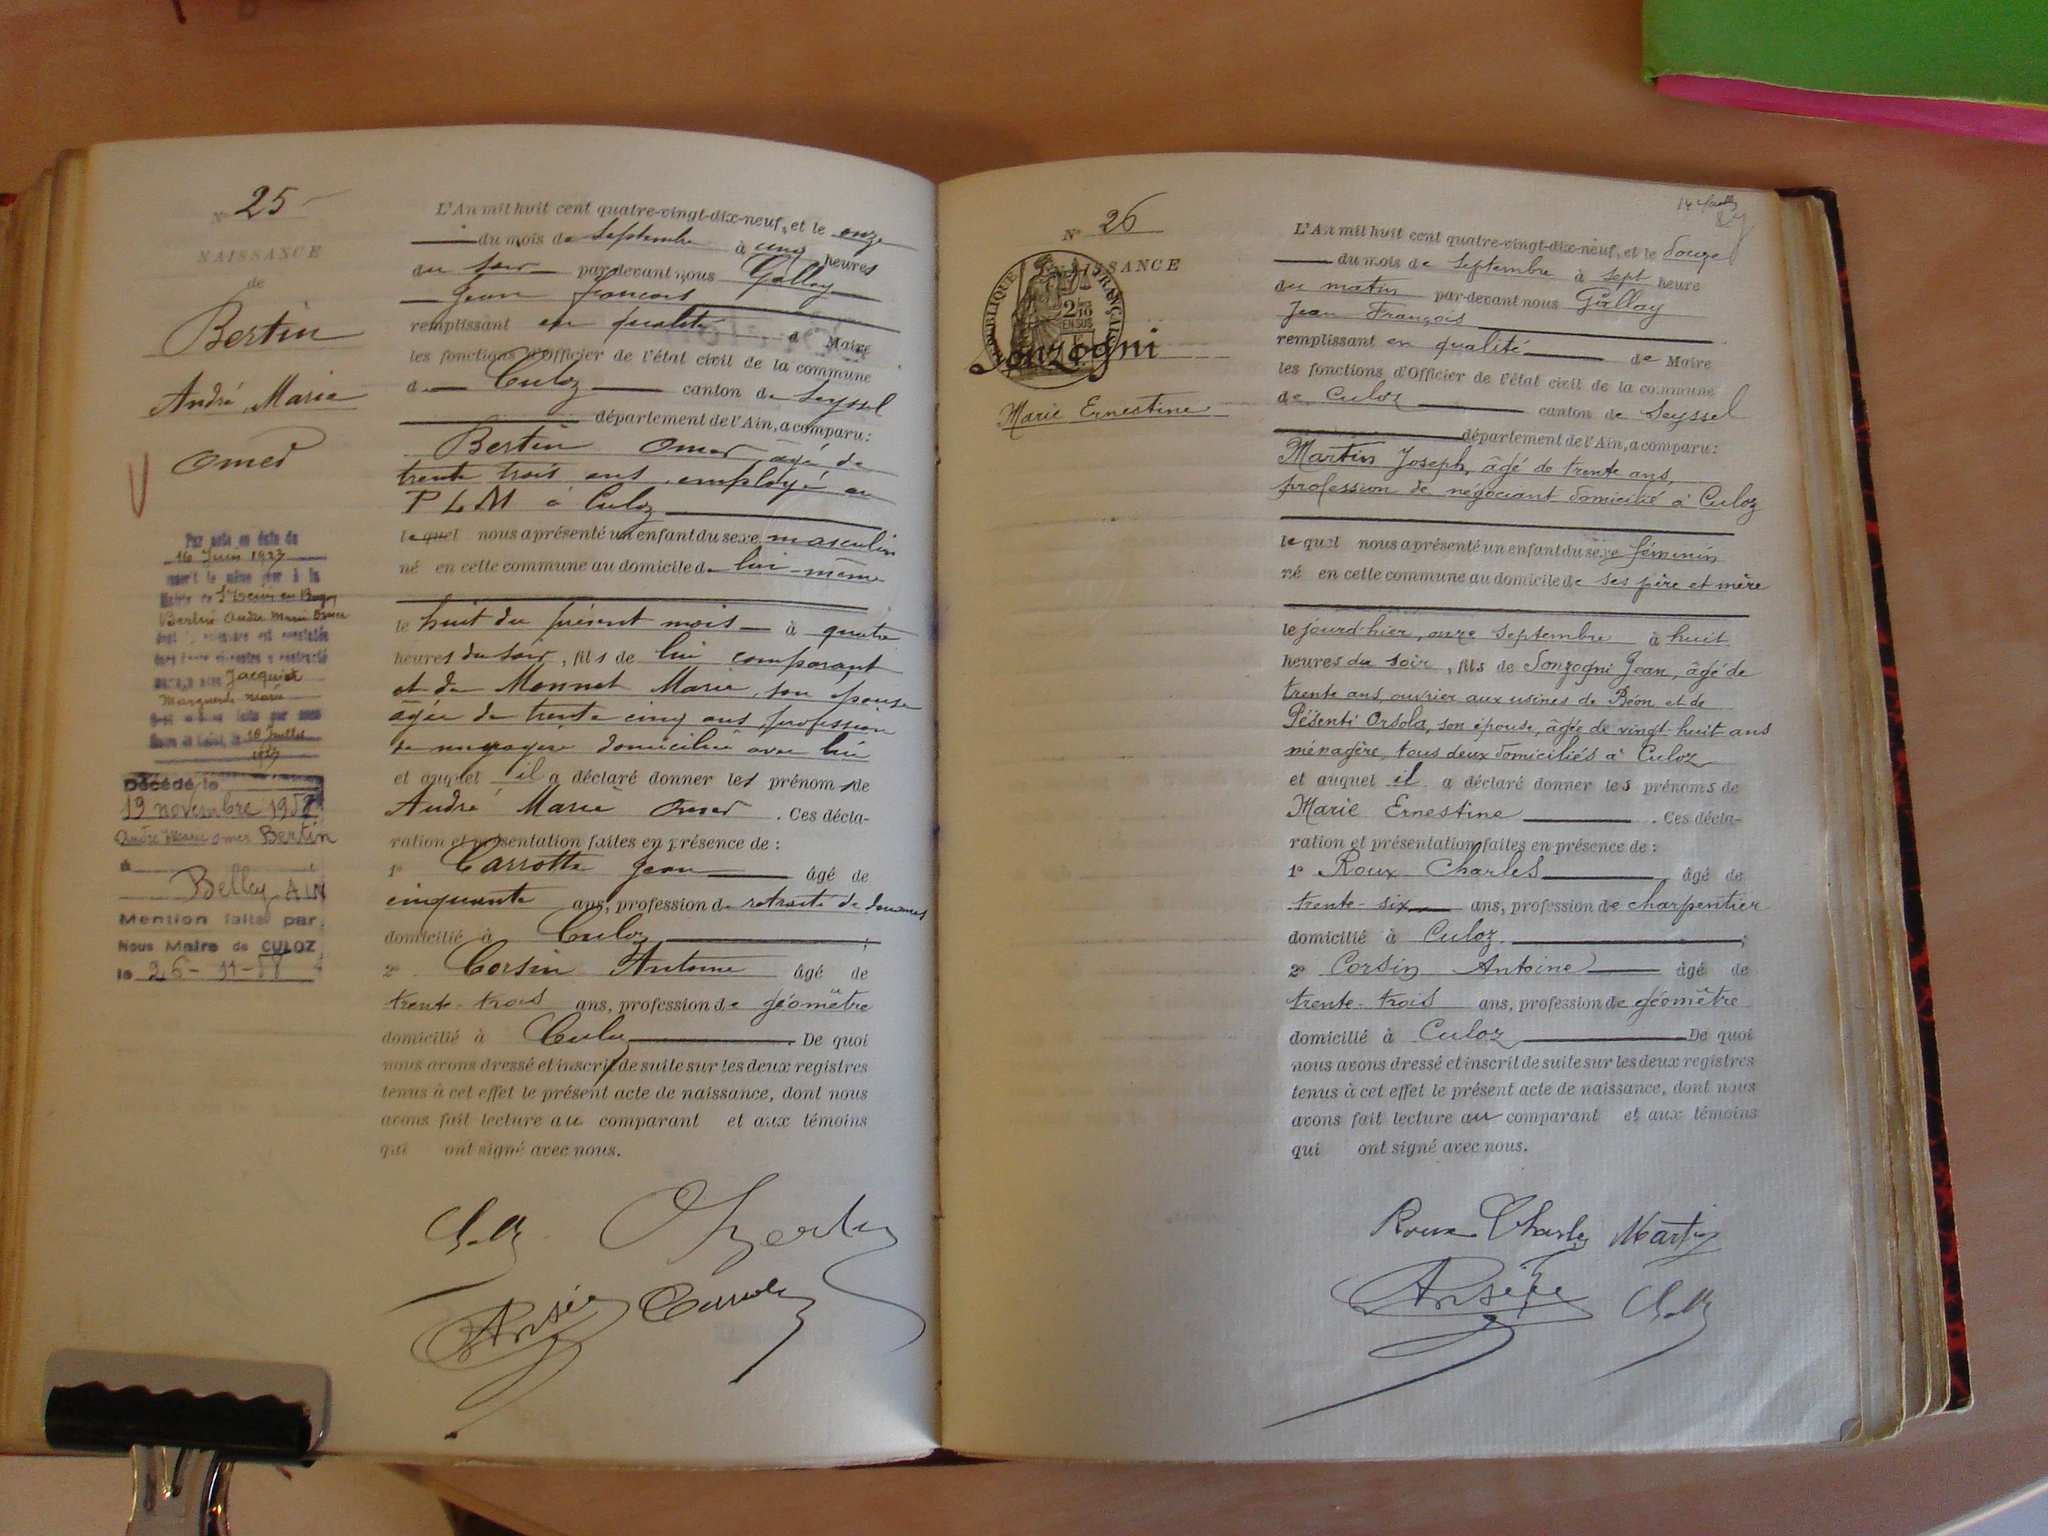 N° 25
NAISSANCE
de
Bertin
André Marie
Omer
16 Juin 1927
Bertin André Marie Omer
Jacquiot
Marguerite Marie
18 Juillet
1927
Décédé le
19 novembre 1958
André Marie Omer Bertin
à
Belley AIN
Mention faite par
Nous Maire de CULOZ
le 26-11-58
L'An mil huit cent quatre-vingt-dix-neuf, et le onze
du mois de Septembre à cinq heures
du soir par-devant nous Gallay
Jean François
remplissant en qualité de Maire
les fonctions d'Officier de l'état civil de la commune
de Culoz canton de Seyssel
département de l'Ain, a comparu:
Bertin Omer âgé de
trente trois ans employé au
P L M à Culoz
lequel nous a présenté un enfant du sexe masculin
né en cette commune au domicile de lui-même
le huit du présent mois à quatre
heures du soir, fils de lui comparant
et de Monnet Marie, son épouse
âgée de trente cinq ans profession
de ménagère domiciliée avec lui
et auquel il a déclaré donner les prénoms de
André Marie Omer. Ces décla-
ration et présentation faites en présence de:
1° Carrotte Jean âgé de
cinquante ans, profession de retraité de douanes
domicilié à Culoz;
2° Corsin Antoine âgé de
trente-trois ans, profession de géomètre
domicilié à Culoz. De quoi
nous avons dressé et inscrit de suite sur les deux registres
tenus à cet effet le présent acte de naissance, dont nous
avons fait lecture au comparant et aux témoins
qui ont signé avec nous.
N° 26
NAISSANCE
RÉPUBLIQUE FRANÇAISE
2/10 EN SUS
Sonzogni
Marie Ernestine
L'An mil huit cent quatre-vingt-dix-neuf, et le douze
du mois de Septembre à sept heure
du matin par-devant nous Gallay
Jean François
remplissant en qualité de Maire
les fonctions d'Officier de l'état civil de la commune
de Culoz canton de Seyssel
département de l'Ain, a comparu:
Martin Joseph, âgé de trente ans,
profession de négociant domicilié à Culoz
lequel nous a présenté un enfant du sexe féminin
né en cette commune au domicile de ses père et mère
le jourd'hier, onze Septembre à huit
heures du soir, fils de Sonzogni Jean, âgé de
trente ans, ouvrier aux usines de Béon et de
Pésenti Orsola, son épouse, âgée de vingt-huit ans
ménagère, tous deux domiciliés à Culoz
et auquel il a déclaré donner les prénoms de
Marie Ernestine. Ces décla-
ration et présentation faites en présence de:
1° Roux Charles, âgé de
trente-six ans, profession de charpentier
domicilié à Culoz;
2° Corsin Antoine âgé de
trente-trois ans, profession de géomètre
domicilié à Culoz De quoi
nous avons dressé et inscrit de suite sur les deux registres
tenus à cet effet le présent acte de naissance, dont nous
avons fait lecture au comparant et aux témoins
qui ont signé avec nous.
Roux Charles Martin